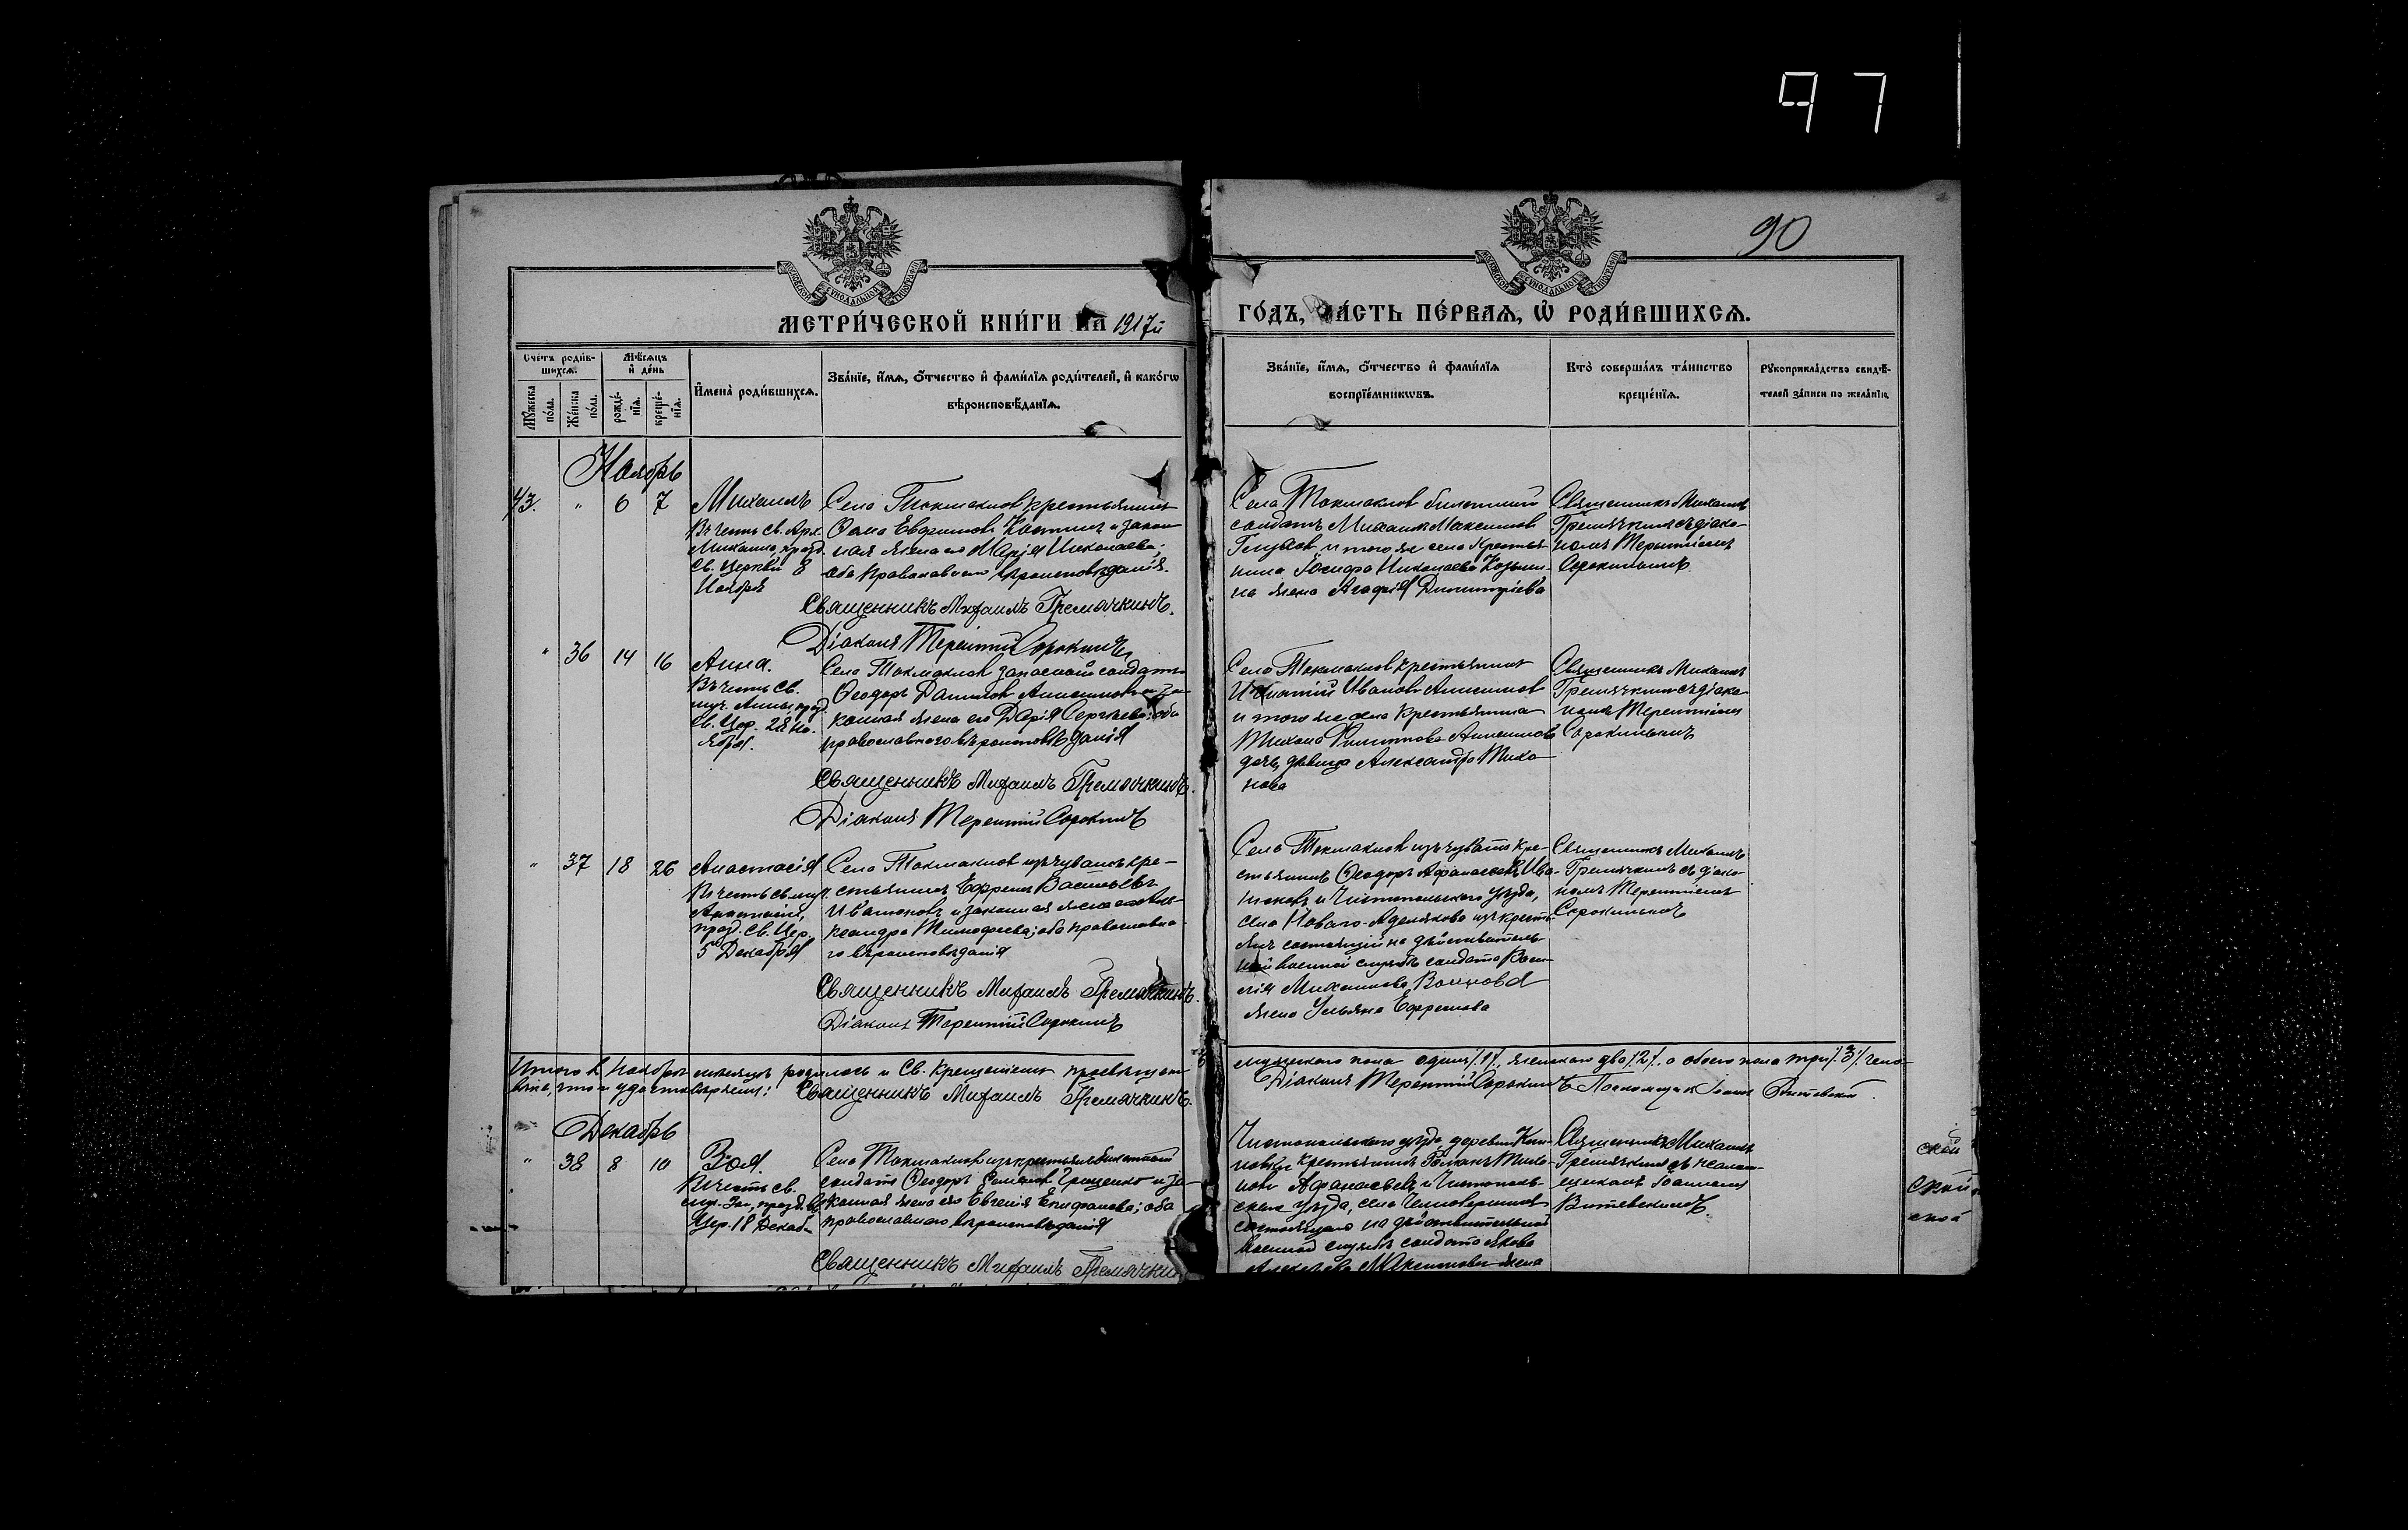 97
90
МОСКОВСКОЙ СѴНОДАЛЬНОЙ ТИПОГРАФІИ
МОСКОВСКОЙ СѴНОДАЛЬНОЙ ТИПОГРАФІИ
МЕТРИ́ЧЕСКОЙ КНИ́ГИ НА 1917й
ГО́ДЪ, ЧА́СТЬ ПЕ́РВАѦ, Ѡ҆ РОДИ́ВШИХСѦ.
Сче́тъ роди́в-
шихсѧ.
Мꙋ́жеска по́ла.
Же́нска по́ла.
Мѣ́сѧцъ
и҆ де́нь
рожде́-
нїѧ.
креще́-
нїѧ.
И҆мена̀ роди́вшихсѧ.
Зва́нїе, и҆́мѧ, ѻ҆́тчество и҆ фами́лїѧ роди́телей, и҆ како́гѡ
вѣроисповѣ́данїѧ.
Зва́нїе, и҆́мѧ, ѻ҆́тчество и҆ фами́лїѧ
воспрїе́мникѡвъ.
Кто̀ соверша́лъ та́инство
креще́нїѧ.
Рꙋкоприкла́дство свидѣ́-
телей за́писи по жела́нїю.
Ноябрь
43. " 6 7
Михаилъ
Въ честь Св. Арх.
Михаила, празд.
Св. Церкви 8
Ноября
Села Токмаклов крестьянинъ
Ѳома Евдокимовъ и закон-
ная жена его Марія Николаева;
оба православнаго вѣроисповѣданія.
Священникъ Михаилъ Гремячкинъ.
Діаконъ Терентій Сорокинъ
Села Токмаклов билетный
солдатъ Михаилъ Максимовъ
и того же села крестья-
нина Іосифа Николаева
на жена Агафія Димитріева
Священникъ Михаилъ
Гремячкинъ съ діако-
номъ Терентіемъ
Сорокинымъ
" 36 14 16
Анна.
Въ честь Св.
муч. Анны, празд.
Св. Цер. 28 Но-
ября.
Села Токмаклов запасной солдатъ
Ѳеодоръ Даниловъ Анисимовъ и за-
конная жена его Дарія Сергѣева; оба
православнаго вѣроисповѣданія
Священникъ Михаилъ Гремячкинъ.
Діаконъ Терентій Сорокинъ
Села Токмаклов крестьянинъ
Игнатій Ивановъ Анисимовъ
и того же села крестьянина
Тихона Филиппова Анисимова
дочь, дѣвица Александра Тихо-
нова
Священникъ Михаилъ
Гремячкинъ съ діако-
номъ Терентіемъ
Сорокинымъ
" 37 18 26
Анастасія
Въ честь Св. муч.
Анастасіи,
празд. Св. Цер.
5го Декабря
Села Токмаклов изъ чувашъ кре-
стьянинъ Ефремъ Васильевъ
Иватюковъ и законная жена его Але-
ксандра Тимофеева; оба православна-
го вѣроисповѣданія
Священникъ Михаилъ Гремячкинъ.
Діаконъ Терентій Сорокинъ
Села Токмаклов изъ чувашъ кре-
стьянинъ Ѳеодоръ Афанасьевъ Ива-
и Чистопольскаго уѣзда,
села Новаго-Аделякова изъ кресть-
янъ состоящій на дѣйствитель-
ной военной службѣ солдата Васи-
лія Михаилова
жена Ульяна Ефремова
Священникъ Михаилъ
Гремячкинъ съ діако-
номъ Терентіемъ
Сорокинымъ
Итого въ Ноябрѣ мѣсяцѣ родилось и Св. Крещеніемъ просвѣщен
мужескаго пола одинъ /1/, женскаго два /2/. а обоего пола три /3/ чело-
вѣка, что и удостовѣряемъ: Священникъ Михаилъ Гремячкинъ.
Діаконъ Терентій Сорокинъ Псаломщикъ Іоаннъ Витевскій
Декабрь
" 38 8 10
Зоя.
Въ честь Св.
муч. Зои, празд. Св.
Цер. 18 Декаб.
Села Токмаклов изъ крестьянъ билетный
солдатъ Ѳеодоръ Грищенко и за-
конная жена его Евгенія Епифанова; оба
православнаго вѣроисповѣданія
Священникъ Михаилъ Гремячкин
Чистопольскаго уѣзда, деревни
крестьянинъ Романъ Тихо-
новъ Афанасьевъ и Чистополь-
скаго уѣзда, села
состоящаго на дѣйствительной
военной службѣ солдата Якова
жена
Священникъ Михаилъ
Гремячкинъ съ псалом-
щикомъ Іоанномъ
Витевскимъ
ской
ской
ской